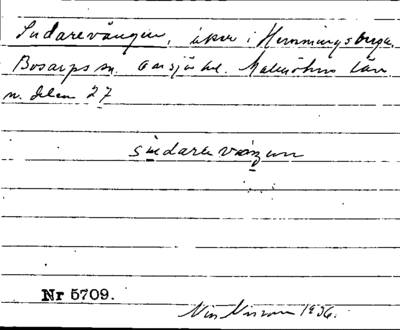 Sudarevången, åker i Hemmingsberga,
Bosarps sn. Onsjö hd. Malmöhus län
n. delen 27
sudarevaŋen
Nr 5709.
Nils Nilsson 1936.